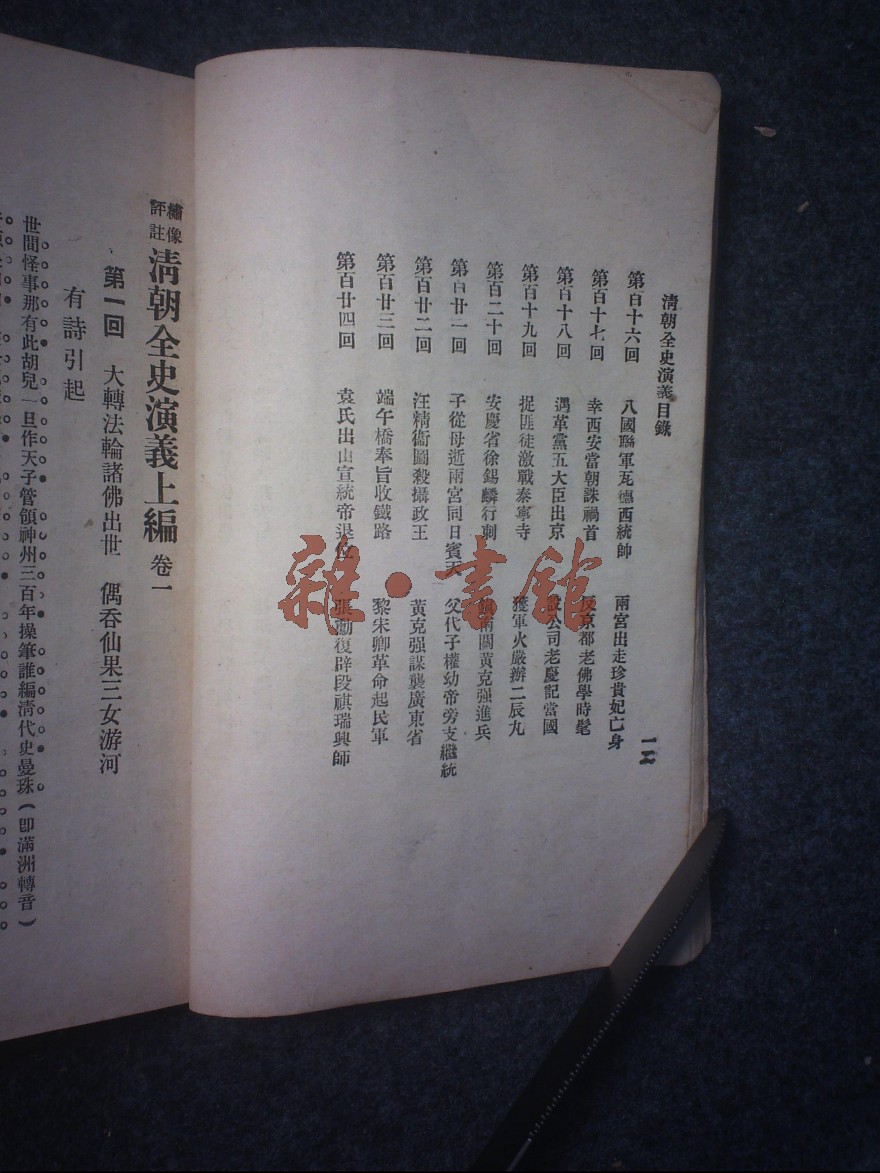 清朝全史演義目錄
一六
第百十六回 八國聯軍瓦德西統帥 兩宮出走珍貴妃亡身
第百十七回 幸西安當朝誅禍首 反京都老佛學時髦
第百十八回 遇革黨五大臣出京 設公司老慶記當國
第百十九回 捉匪徒激戰泰寧寺 獲軍火嚴辦二辰丸
第百二十回 安慶省徐錫麟行刺 鎮南關黃克强進兵
第百廿一回 子從母逝兩宮同日賓天 父代子權幼帝旁支繼統
第百廿二回 汪精衞圖殺攝政王 黃克强謀襲廣東省
第百廿三回 端午橋奉旨收鐵路 黎宋卿革命起民軍
第百廿四回 袁氏出山宣統帝退位 張勳復辟段祺瑞興師
雜·書館
繡像評註 清朝全史演義上編 卷一
第一回 大轉法輪諸佛出世 偶吞仙果三女游河
有詩引起
世間怪事那有此胡兒一旦作天子管領神州三百年操筆誰編清代史曼珠(卽滿洲轉音)